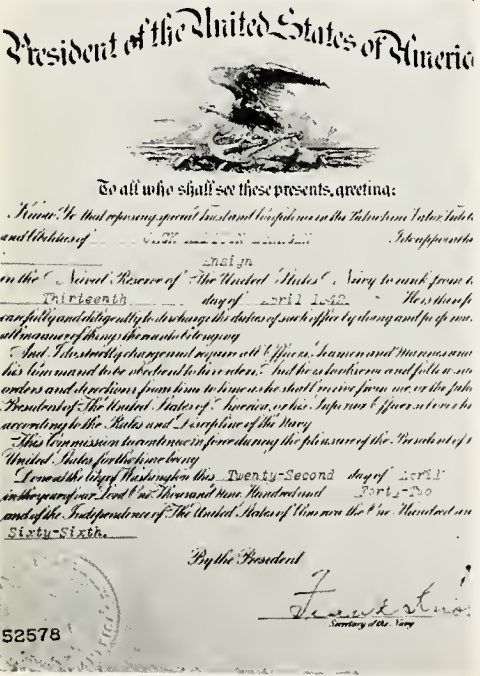 President of the United States of America
To all who shall see these presents, greeting:
Know Ye that reposing special trust and Confidence in the Patriotism Valor, Fideli
and Abilities of I do appoint h
Ensign
in the Naval Reserve of The United States Navy to rank from t
Thirteenth day of April 1942 He is therefo
carefully and diligently to discharge the duties of such office by doing and perform
all manner of things thereunto belonging
And I do strictly charge and require all Officers, Seamen and Marines und
his Command to be obedient to his orders And he is to observe and follow su
orders and directions from time to time as he shall receive from me, or the futu
President of The United States of America, or his Superior Officer set over h
according to the Rules and Discipline of the Navy
This Commission to continue in force during the pleasure of the President of t
United States for the time being
Done at the City of Washington this Twenty-Second day of April
in the year of our Lord One Thousand Nine Hundred and Forty-Two
and of the Independence of The United States of America the One Hundred an
Sixty-Sixth.
By the President
Secretary of the Navy
52578